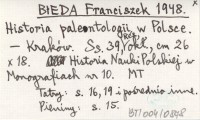 BIEDA Franciszek 1948.
Historia paleontologii w Polsce.
– Kraków. Ss. 39, okł., cm 26
x 18. Historia Nauki Polskiej w
Monografiach nr 10. MT
Tatry: s. 16, 19 i pośrednio inne.
Pieniny: s. 15.